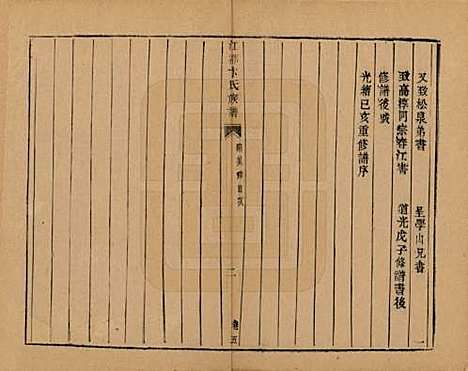 又致松泉弟書
呈學山兄書
致高淳同宗春江書
道光戊子修譜書後
修譜後跋
光緒己亥重修譜序
江都卞氏族譜
二
卷五
一